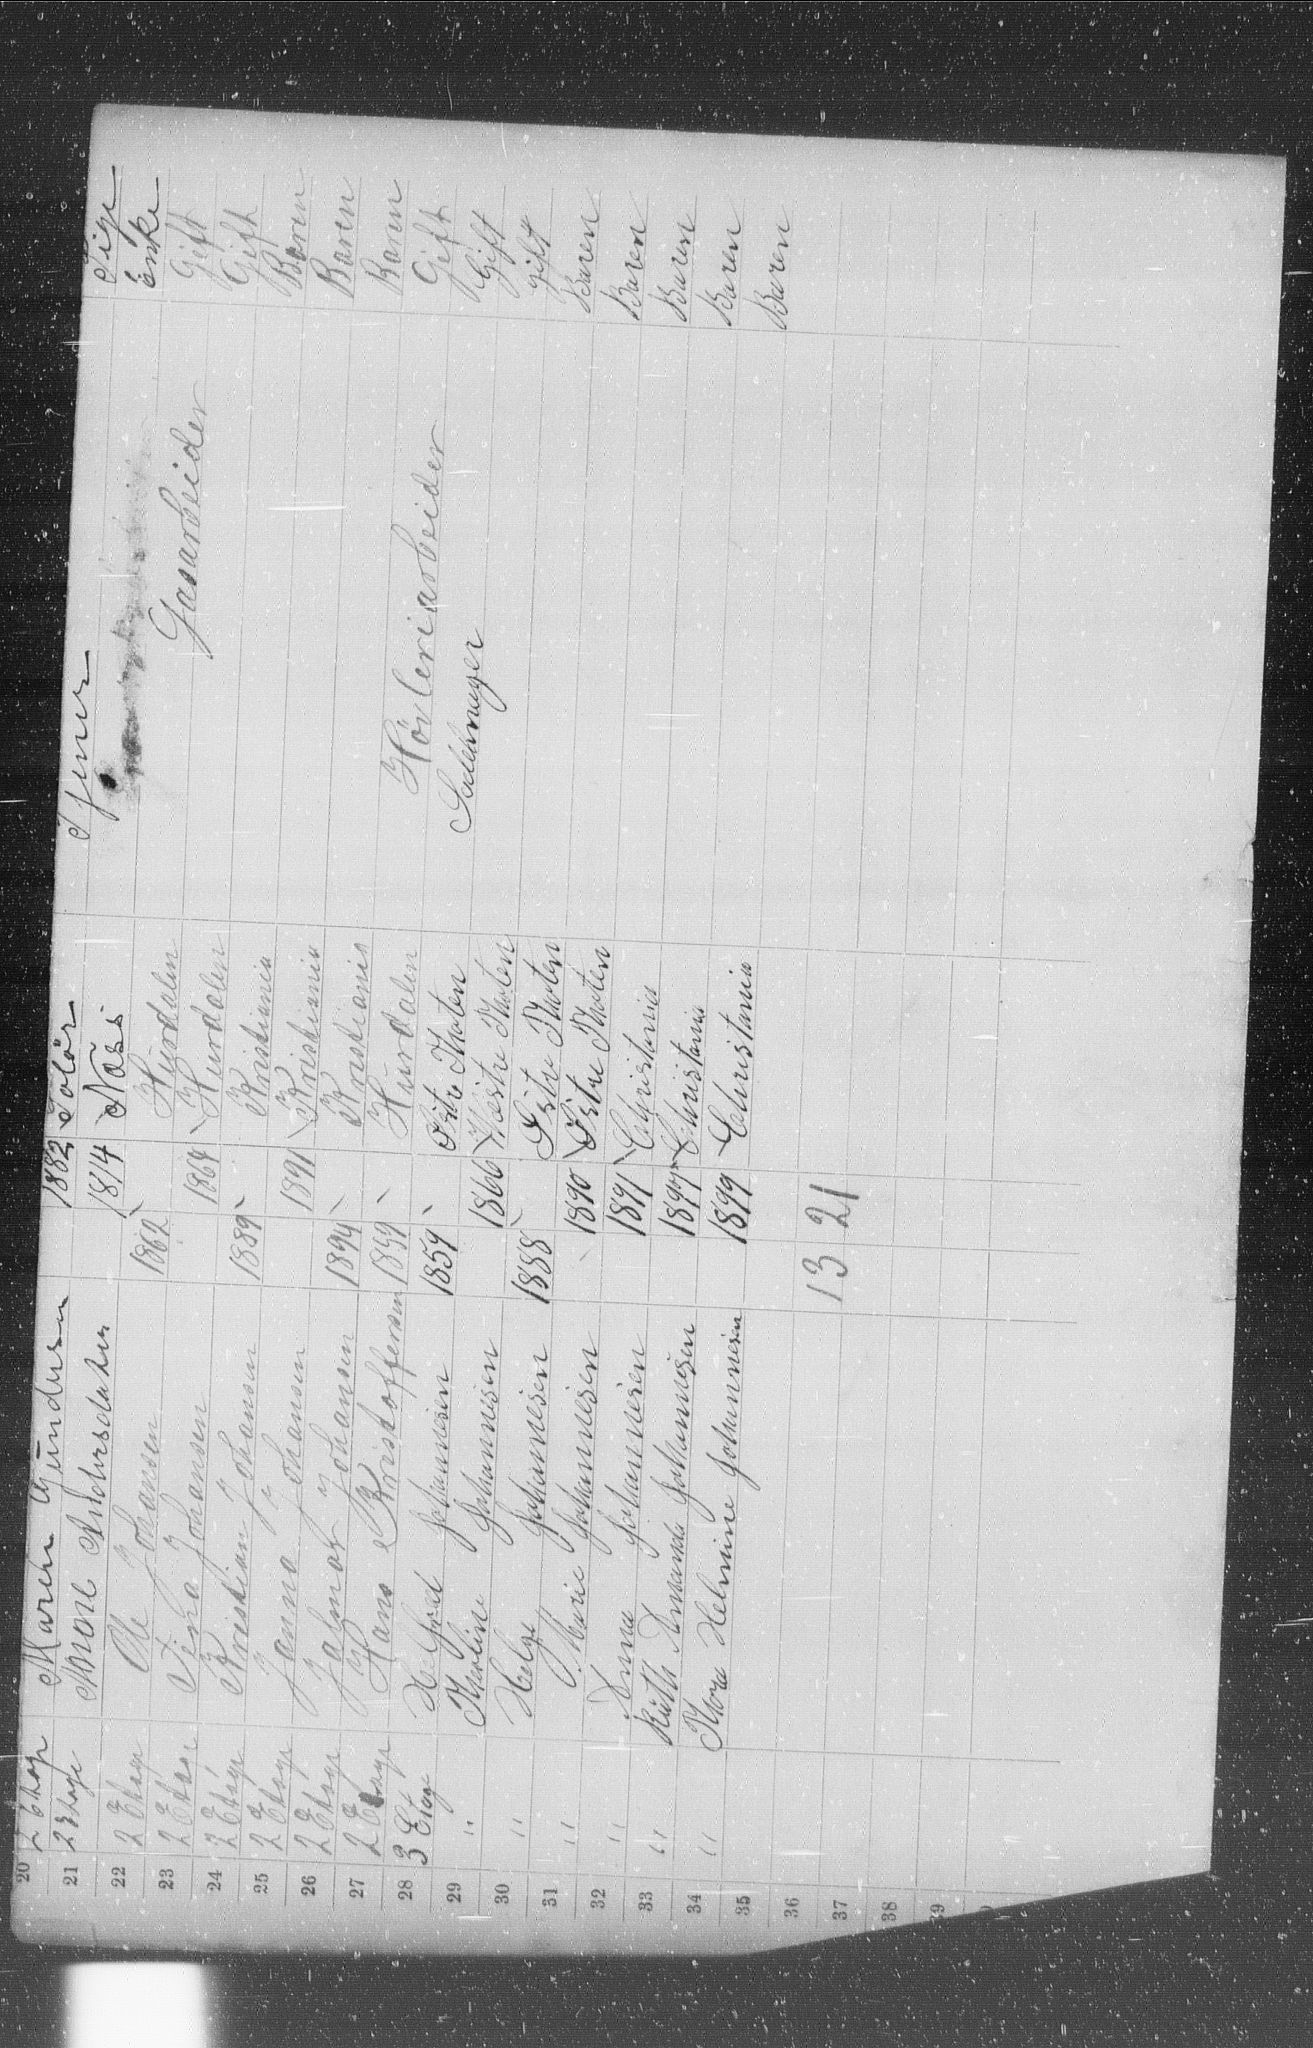 20 2 Etage Maren Gundersen 1882 Solör Tjener Pige
21 2 Etage Anne Andersdatter 1814 Næs enke
22 2 Etage Ole Johansen 1862 Hurdalen Gasarbeider Gift
23 2 Etage Tina Johansen 1864 Hurdalen Gift
24 2 Etage Kristian Johansen 1889 Kristiania Baren
25 2 Etage Janna Johansen 1891 Kristiania Baren
26 2 Etage Jalmar Johansen 1894 Kristiania Baren
27 2 Etage Hans Kristoffersen 1859 Hurdalen Hövleriarbeider Gift
28 3 Etage Johannesen 1859 Östre Thoten Gift
29 " Thorline Johannesen 1866 Vestre Thoten gift
30 " Helge Johannesen 1888 Östre Thoten Baren
31 " Marie Johannesen 1890 Östre Thoten Baren
32 " Anna Johannesen 1891 Christania Baren
33 " Ruth Amanda Johannesen 1897 Christania Baren
34 " Thora Helmine Johannesen 1899 Christania Baren
35
36
37 13 21
38
39